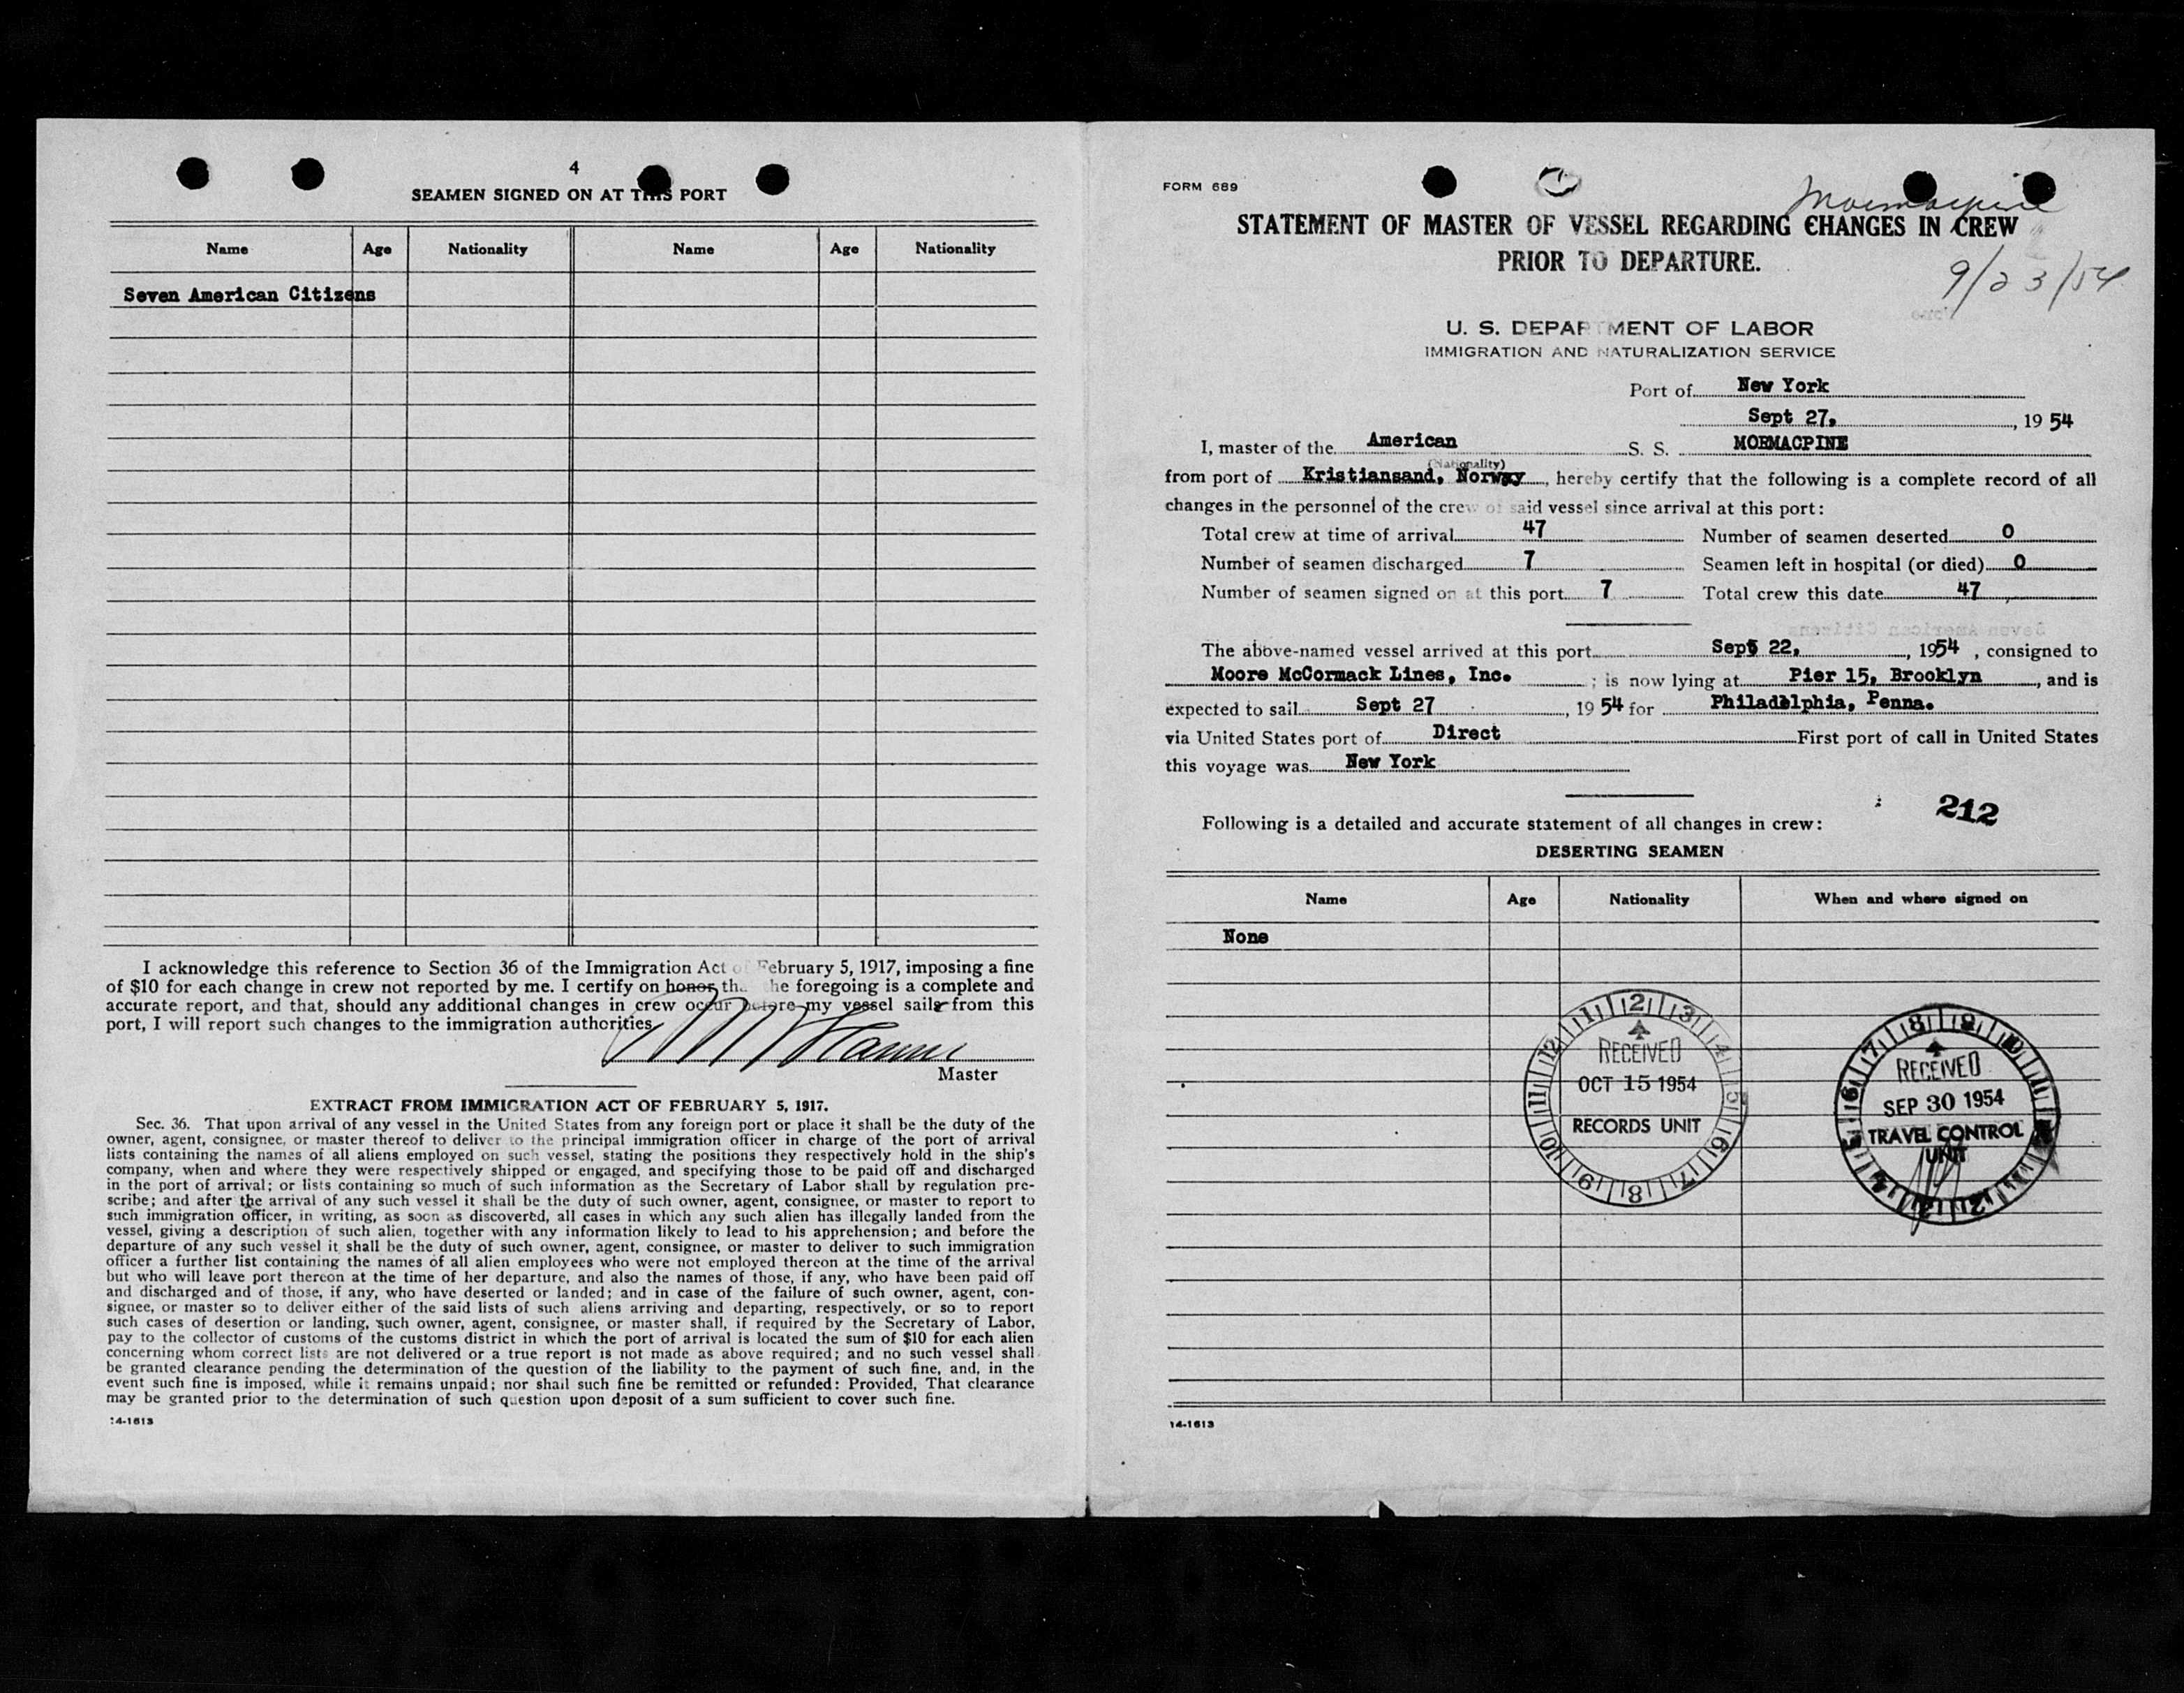 4
SEAMEN SIGNED ON AT THIS PORT
Name Age Nationality Name Age Nationality
Seven American Citizens
I acknowledge this reference to Section 36 of the Immigration Act of February 5, 1917, imposing a fine
of $10 for each change in crew not reported by me. I certify on honor that the foregoing is a complete and
accurate report, and that, should any additional changes in crew occur before my vessel sails from this
port, I will report such changes to the immigration authorities.
Master
EXTRACT FROM IMMIGRATION ACT OF FEBRUARY 5, 1917.
Sec. 36. That upon arrival of any vessel in the United States from any foreign port or place it shall be the duty of the
owner, agent, consignee, or master thereof to deliver to the principal immigration officer in charge of the port of arrival
lists containing the names of all aliens employed on such vessel, stating the positions they respectively hold in the ship's
company, when and where they were respectively shipped or engaged, and specifying those to be paid off and discharged
in the port of arrival; or lists containing so much of such information as the Secretary of Labor shall by regulation pre-
scribe; and after the arrival of any such vessel it shall be the duty of such owner, agent, consignee, or master to report to
such immigration officer, in writing, as soon as discovered, all cases in which any such alien has illegally landed from the
vessel, giving a description of such alien, together with any information likely to lead to his apprehension; and before the
departure of any such vessel it shall be the duty of such owner, agent, consignee, or master to deliver to such immigration
officer a further list containing the names of all alien employees who were not employed thereon at the time of the arrival
but who will leave port thereon at the time of her departure, and also the names of those, if any, who have been paid off
and discharged and of those, if any, who have deserted or landed; and in case of the failure of such owner, agent, con-
signee, or master so to deliver either of the said lists of such aliens arriving and departing, respectively, or so to report
such cases of desertion or landing, such owner, agent, consignee, or master shall, if required by the Secretary of Labor,
pay to the collector of customs of the customs district in which the port of arrival is located the sum of $10 for each alien
concerning whom correct lists are not delivered or a true report is not made as above required; and no such vessel shall
be granted clearance pending the determination of the question of the liability to the payment of such fine, and, in the
event such fine is imposed, while it remains unpaid; nor shall such fine be remitted or refunded: Provided, That clearance
may be granted prior to the determination of such question upon deposit of a sum sufficient to cover such fine.
14-1613
FORM 689
Mormacpine
STATEMENT OF MASTER OF VESSEL REGARDING CHANGES IN CREW
PRIOR TO DEPARTURE.
9/23/54
U. S. DEPARTMENT OF LABOR
IMMIGRATION AND NATURALIZATION SERVICE
Port of New York
Sept 27, , 19 54
I, master of the American S. S. MORMACPINE
(Nationality)
from port of Kristiansand, Norway, hereby certify that the following is a complete record of all
changes in the personnel of the crew of said vessel since arrival at this port:
Total crew at time of arrival 47 Number of seamen deserted 0
Number of seamen discharged 7 Seamen left in hospital (or died) 0
Number of seamen signed on at this port 7 Total crew this date 47
The above-named vessel arrived at this port Sept 22, , 1954 , consigned to
Moore McCormack Lines, Inc. ; is now lying at Pier 15, Brooklyn , and is
expected to sail Sept 27 , 19 54 for Philadelphia, Penna.
via United States port of Direct First port of call in United States
this voyage was New York
212
Following is a detailed and accurate statement of all changes in crew:
DESERTING SEAMEN
Name Age Nationality When and where signed on
None
12 1 2 3 4 5 6 7 8 9 10 11
RECEIVED
OCT 15 1954
RECORDS UNIT
RECEIVED
SEP 30 1954
TRAVEL CONTROL
UNIT
14-1613